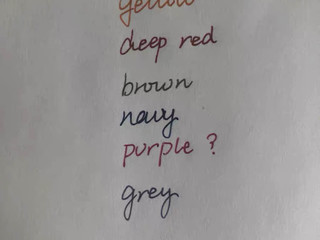 yellow
deep red
brown
navy
purple ?
grey